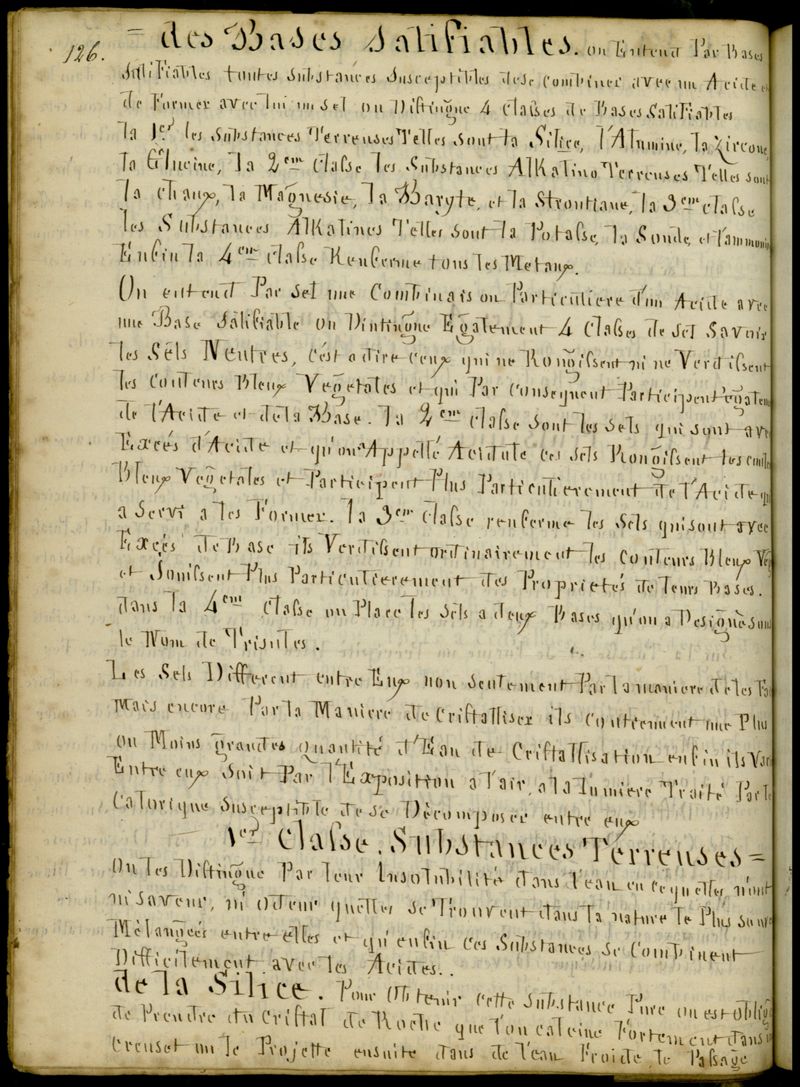 126.
= des Bases Salifiables. on Entend Par Bases
Salifiables toutes Substances Susceptibles de se combiner avec un Acide et
de Former avec lui un Sel on Distingue 4 Claßes de Bases Salifiables
la 1er les Substances Terreuses Telles sont la Silice, l'Alumine, la Zircone
la Glucine, la 2eme Claße les Substances Alkalino Terreuses Telles sont
la chaux, la Magnesie, la Baryte, et la Strontiane, la 3eme claße
les Substances Alkalines Telles sont la Potaße, la Soude, et l'ammoniaq
Enfin la 4eme Claße Renferme tous les Metaux.
On entend Par Sel une Combinaison Particuliere d'un Acide avec
une Base Salifiable on Dintingue Egalement 4 Claßes de Sel Savoir
les Sels Neutres, c'est a dire ceux qui ne Rougißent ni ne Verdißent
les Couleurs Bleux Vegetales et qui Par Consequent Participent egalem
de l'Acide et de la Base. la 2eme Claße sont les Sels qui sont avec
Exces d'Acide et qu'on Appelle Acidule ces Sels Rougißent les coule
Bleux Vegetales et Participent Plus Particulierement de l'Acide qui
a Servi a les Former. la 3eme Claße renferme les Sels qui sont avec
Exces de Base ils Verdißent ordinairement les Couleurs Bleux Veg
et Jouißent Plus Particulierement des Proprietés de leurs Bases.
dans la 4eme Claße on Place les Sels a deux Bases qu'on a Designé Sous
le Nom de Trisules.
Les Sels Different entre Eux non Seulement Par la maniere de les For
Mais encore Par la Maniere de Cristalliser ils Contiennent une Plus
ou Moins grandes quantité d'Eau de Cristallisation enfin ils Vari
Entre eux Soit Par l'Exposition a l'air, a la lumiere Traité Par le
Calorique Susceptible de se Décomposer entre eux
1er Claße. Substances Terreuses =
On les Distingue Par leur Insolubilité dans l'eau en ce qu'elles n'ont
ni Saveur, ni odeur quelles se Trouvent dans la nature le Plus Souv
Melangées entre elles et qu'enfin ces Substances se Combinent
Difficilement avec les Acides..
de la Silice. Pour Obtenir cette Substance Pure on est oblig
de Prendre du Cristal de Roche que l'on calcine Fortement dans un
Creuset on le Projette ensuite dans de l'eau Froide, le Paßage